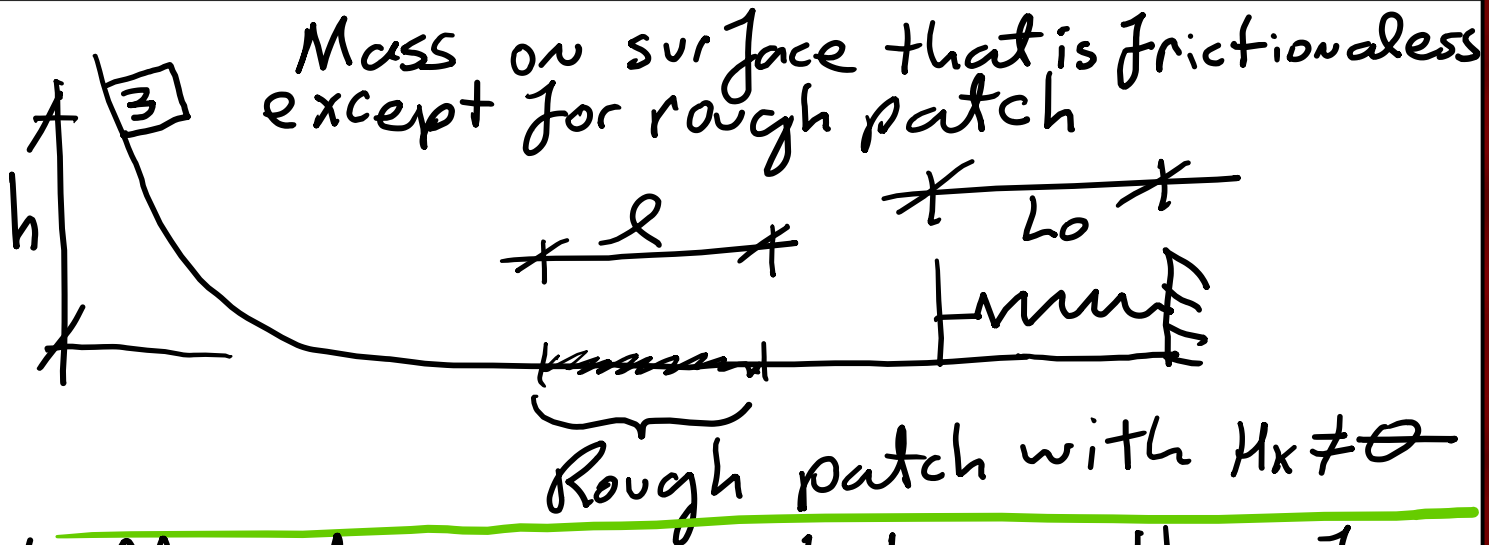 Mass on surface that is frictionaless
except for rough patch
m
h
l
Lo
Rough patch with μk ≠ 0